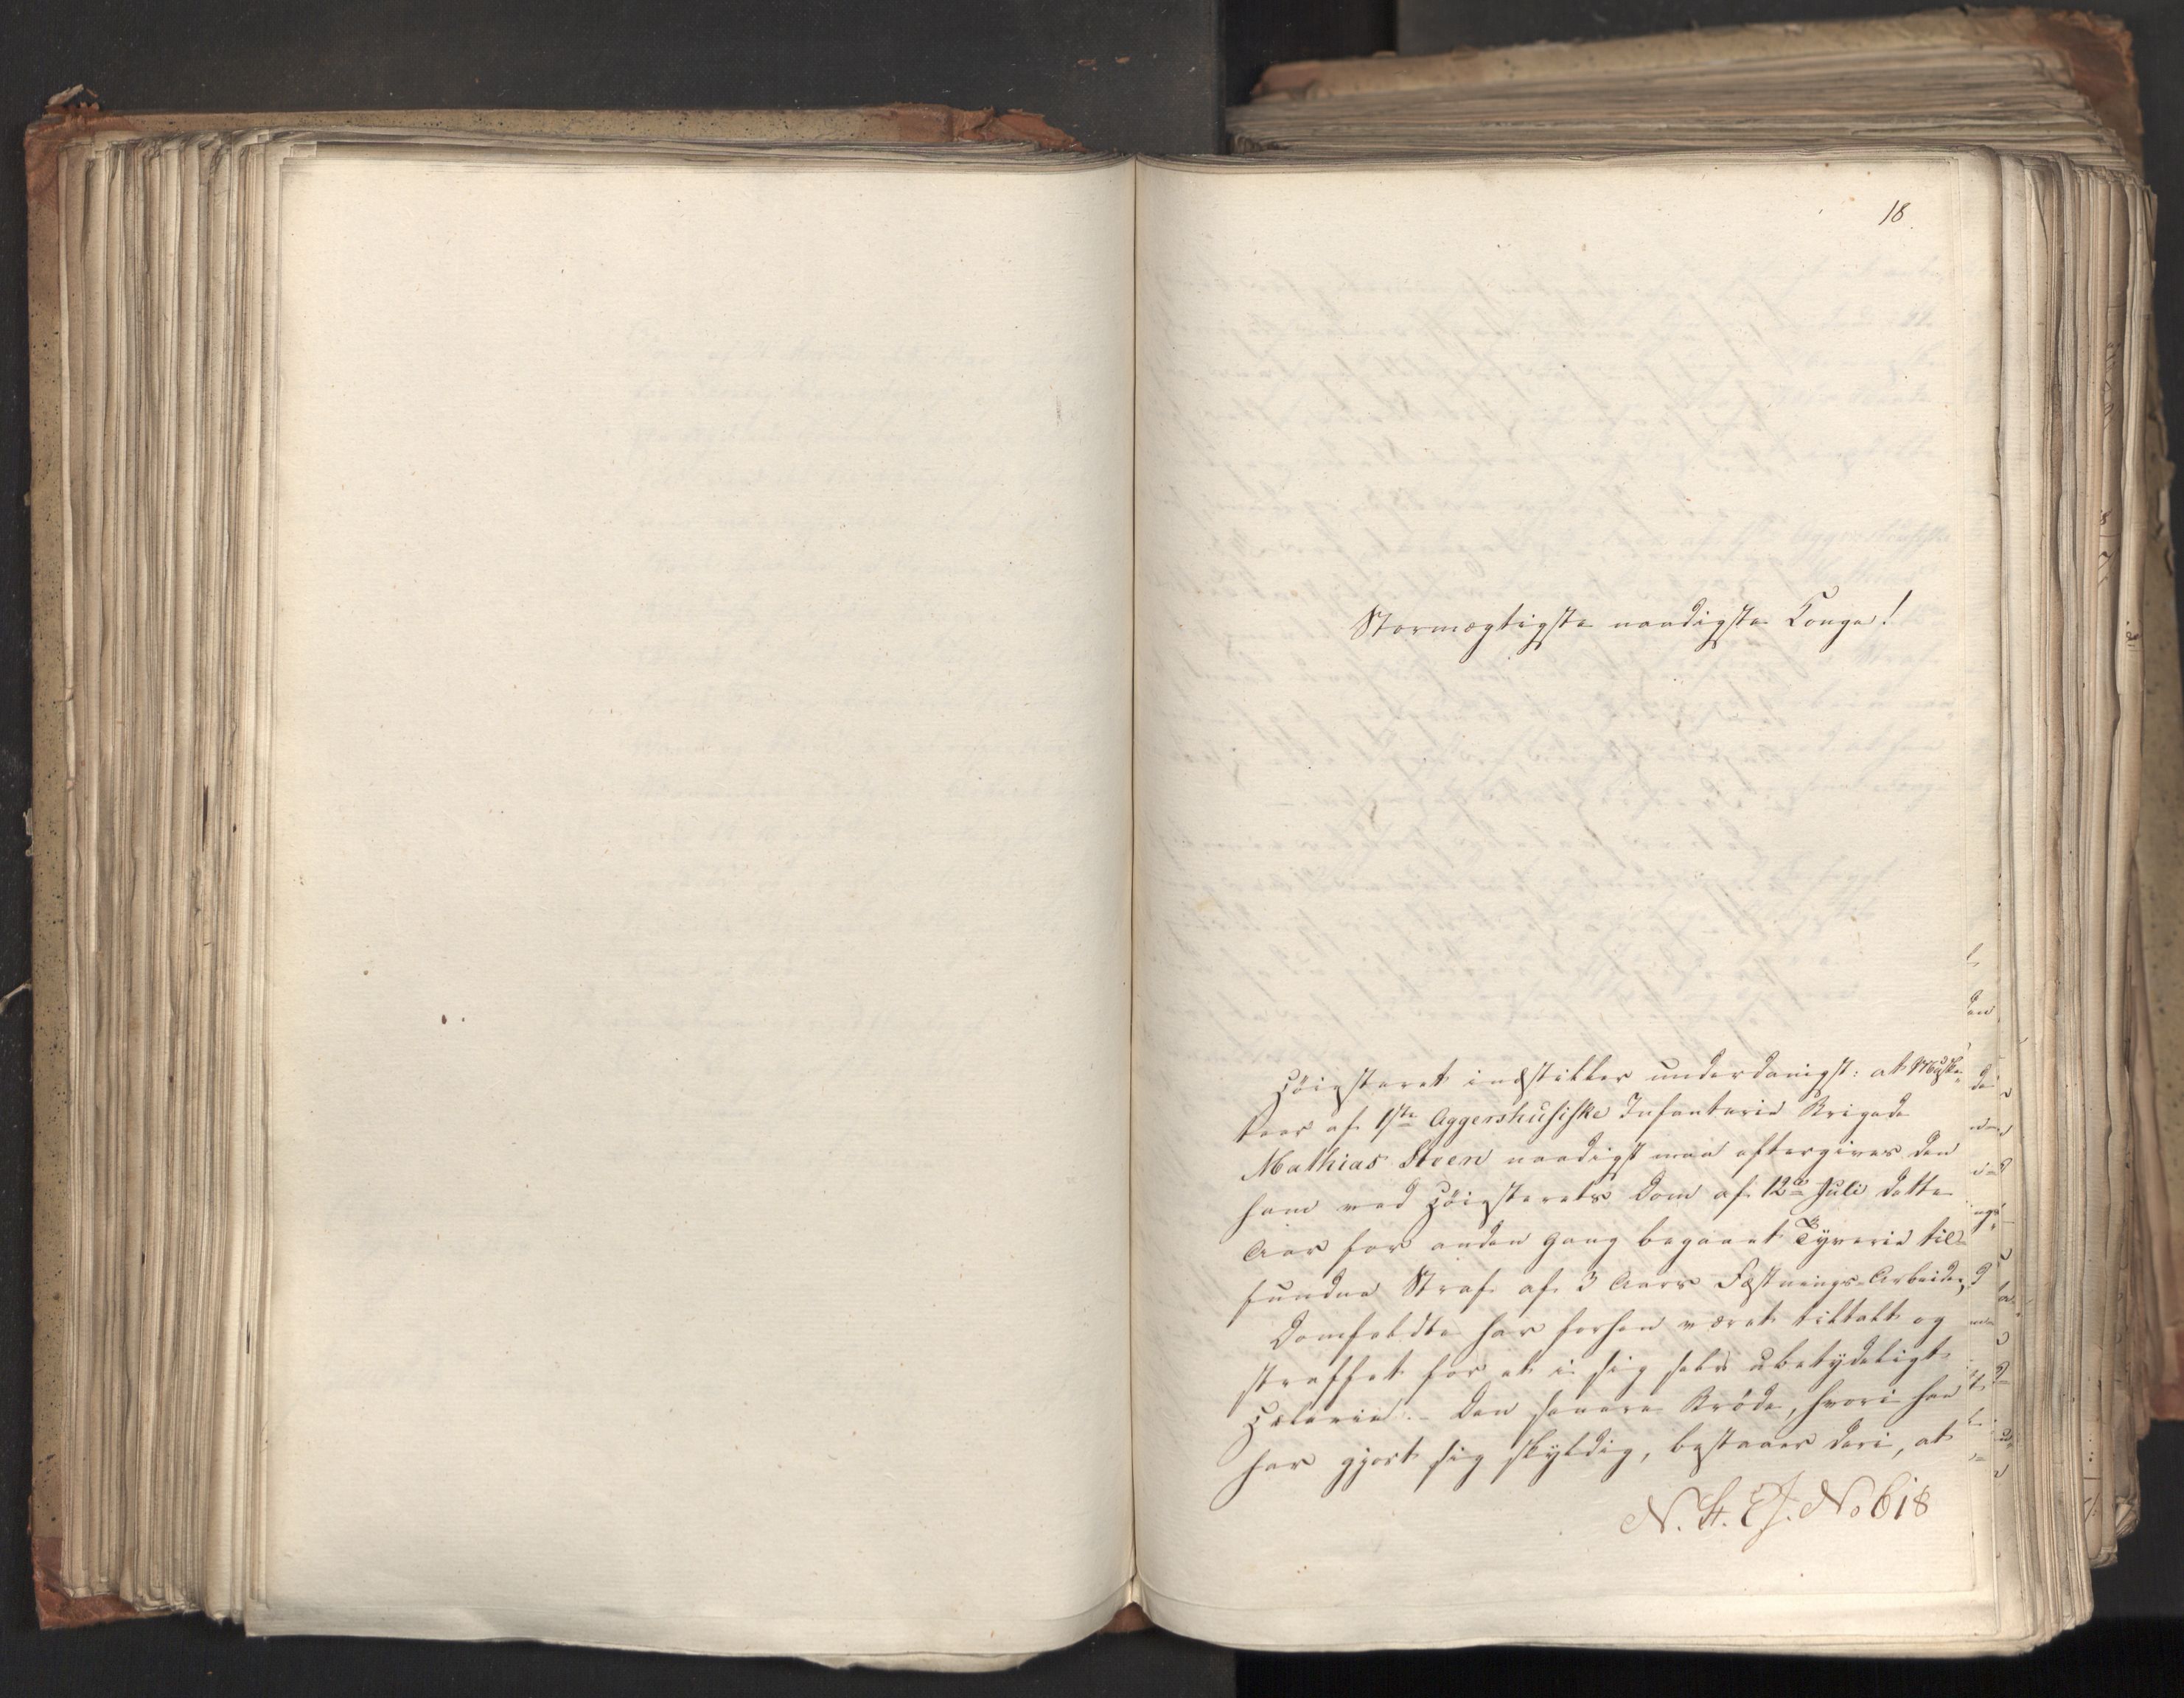 18.
Stormægtigste naadigste Konge!
Höiesteret indstiller underdanigst: at Muske-
teer af 1ste Aggershusiske Infanterie Brigade
Mathias Steen naadigst maa eftergives den
ham ved Höiesterets Dom af 12te Juli dette
Aar for anden Gang begaaet Tyverie til-
fundne Straf af 3 Aars Fæstnings-Arbeide,
Domfeldte har forhen været tiltalt og
straffet for et i sig selv ubetydeligt
Hælerie. - Den senere Bröde, hvori han
har gjort sig skyldig, bestaaer deri, at
No 618